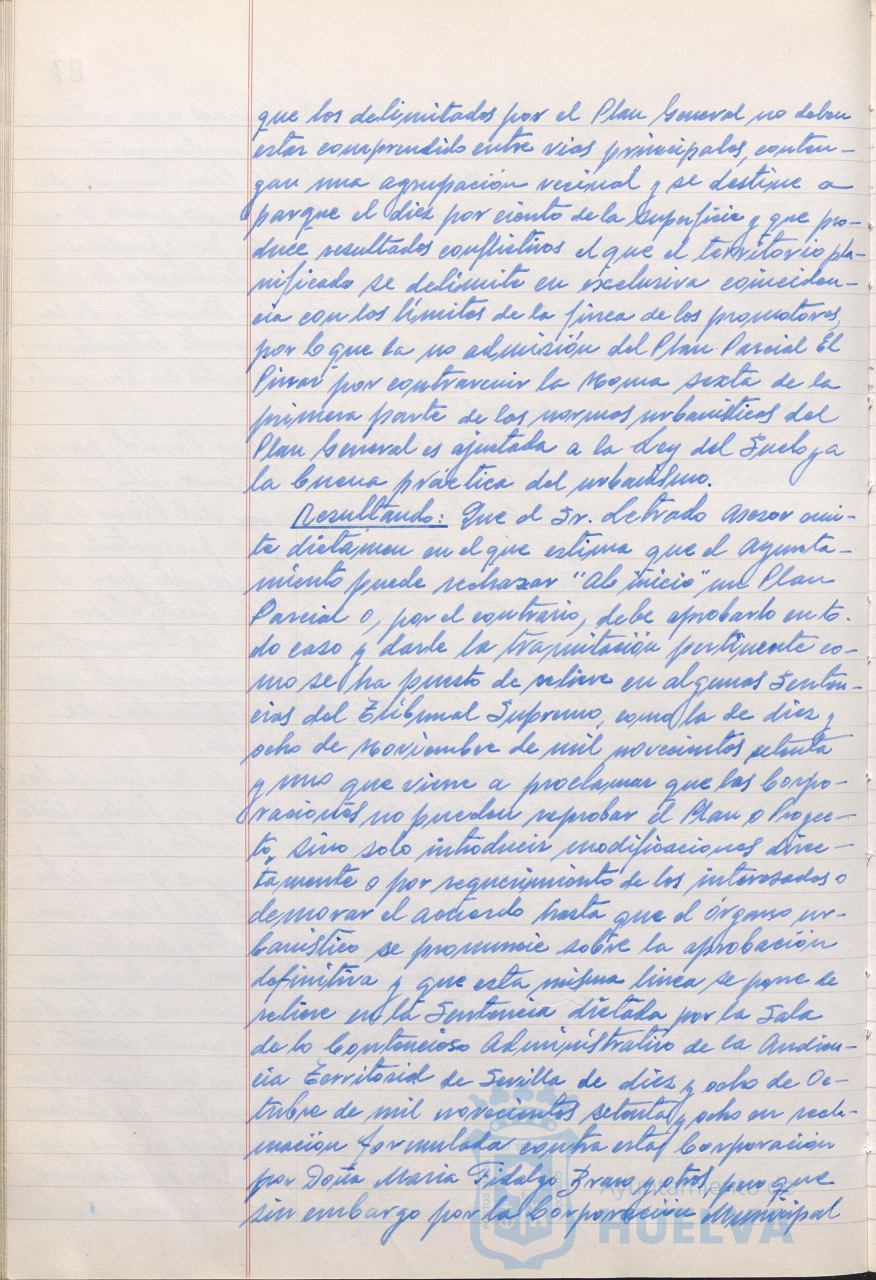 que los delimitados por el Plan General no deben
estar comprendido entre vias principales, conten-
gan una agrupación vecinal y se destine a
parque el diez por ciento de la superficie y que pro-
duce resultados conflictivos el que el territorio pla-
nificado se delimite en exclusiva coinciden-
cia con los límites de la finca de los promotores,
por lo que la no admisión del Plan Parcial El
Pinar por contravenir la Norma sexta de la
primera parte de las normas urbanísticas del
Plan General es ajustada a la Ley del Suelo y a
la buena práctica del urbanismo.
Resultando: Que el Sr. Letrado Asesor emi-
te dictamen en el que estima que el Ayunta-
miento puede rechazar "Ab inicio" un Plan
Parcial o, por el contrario, debe aprobarlo en to-
do caso y darle la tramitación pertinente co-
mo se ha puesto de relieve en algunas Senten-
cias del Tribunal Supremo, como la de diez y
ocho de Noviembre de mil novecientos setenta
y uno que viene a proclamar que las Corpo-
raciones no pueden reprobar el Plan o Proyec-
to, sino solo introducir modificaciones direc-
tamente o por requerimiento de los interesados o
demorar el acuerdo hasta que el órgano ur-
banístico se pronuncie sobre la aprobación
definitiva y que esta misma linea se pone de
relieve en la Sentencia dictada por la Sala
de lo Contencioso Administrativo de la Audien-
cia Territorial de Sevilla de diez y ocho de Oc-
tubre de mil novecientos setenta y ocho en recla-
mación formulada contra esta Corporación
por Doña Maria Fidalgo Bravo y otros, pero que
sin embargo por la Corporación Municipal
Ayuntamiento de
HUELVA